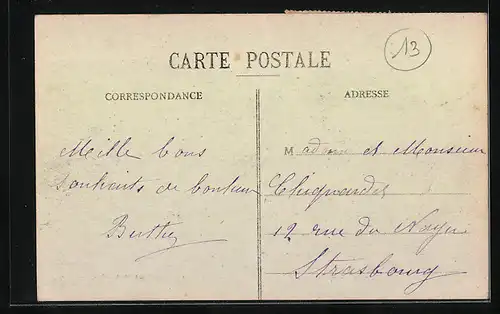 13
CARTE POSTALE
CORRESPONDANCE
ADRESSE
Mille bons
souhaits de bonheur
Berthe
Madame et Monsieur
12 rue du Noyer
Strasbourg